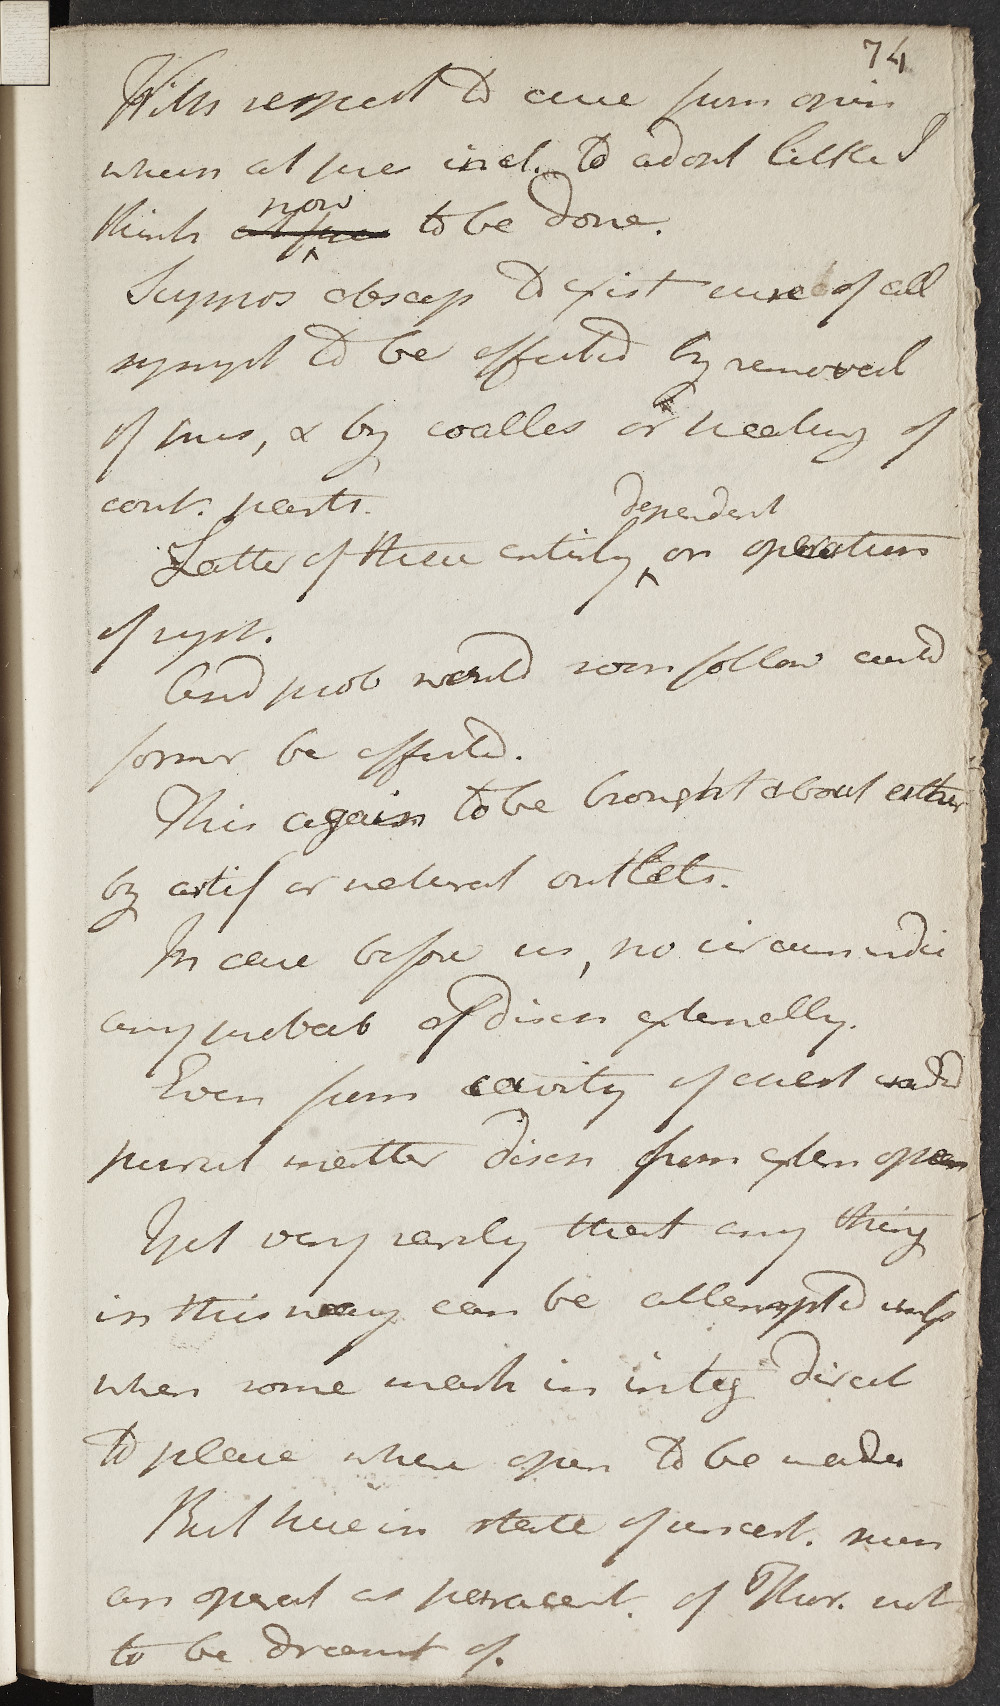 74
With respect to cure from opin
whern at pre incl. to adopt little I
think now to be done.
Suppos abscess to exist cure of all
sympt to be effected by removal
of pus, & by coalles or healing of
cont. parts.
Latter of these entirely dependent on operations
of syst.
And prob would soon follow could
former be effected.
This again to be brought about either
by artif or natural outlets.
In case before us, no circum indic
any probab of disch externally.
Even from cavity of chest indeed
purul matter disch from extern open
Yet very rarely that any thing
in this way can be attempted unless
when some mark in integ direct
to place where open to be made
But here in state of uncert. such
an operat as paracent. of Thor. not
to be dreamt of.